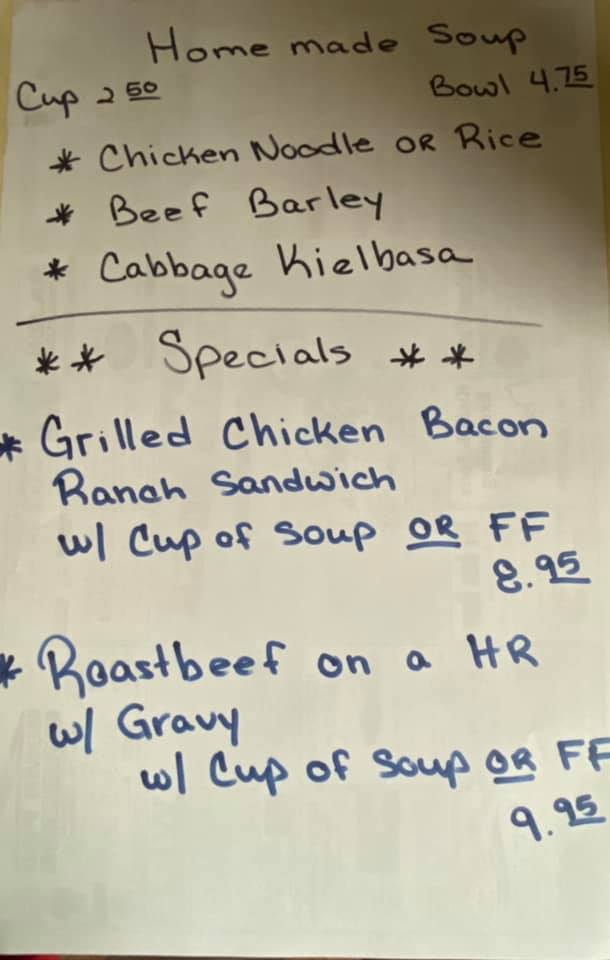 Home made Soup
Cup 2 50 Bowl 4.75
* Chicken Noodle OR Rice
* Beef Barley
* Cabbage Kielbasa
** Specials **
* Grilled Chicken Bacon
Ranch Sandwich
w/ Cup of Soup OR FF
8.95
* Roastbeef on a HR
w/ Gravy
w/ Cup of Soup OR FF
9.95